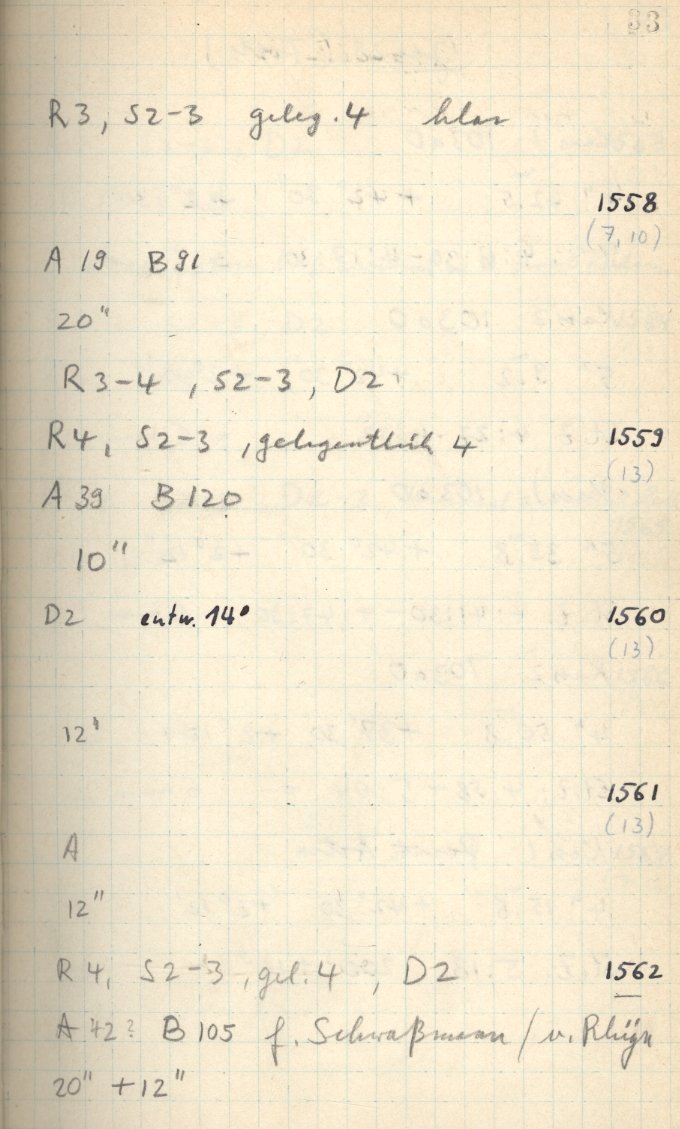 33
R3, S2-3 geleg. 4 klar
1558
(7, 10)
A 19 B91
20"
R3-4, S2-3, D2
R4, S2-3, gelegentlich 4 1559
(13)
A 39 B120
10"
D2 entw. 14° 1560
(13)
12"
1561
(13)
A
12"
R4, S2-3, gel. 4, D2 1562
A 42? B105 f. Schwaßmann / v. Rhijn
20" + 12"